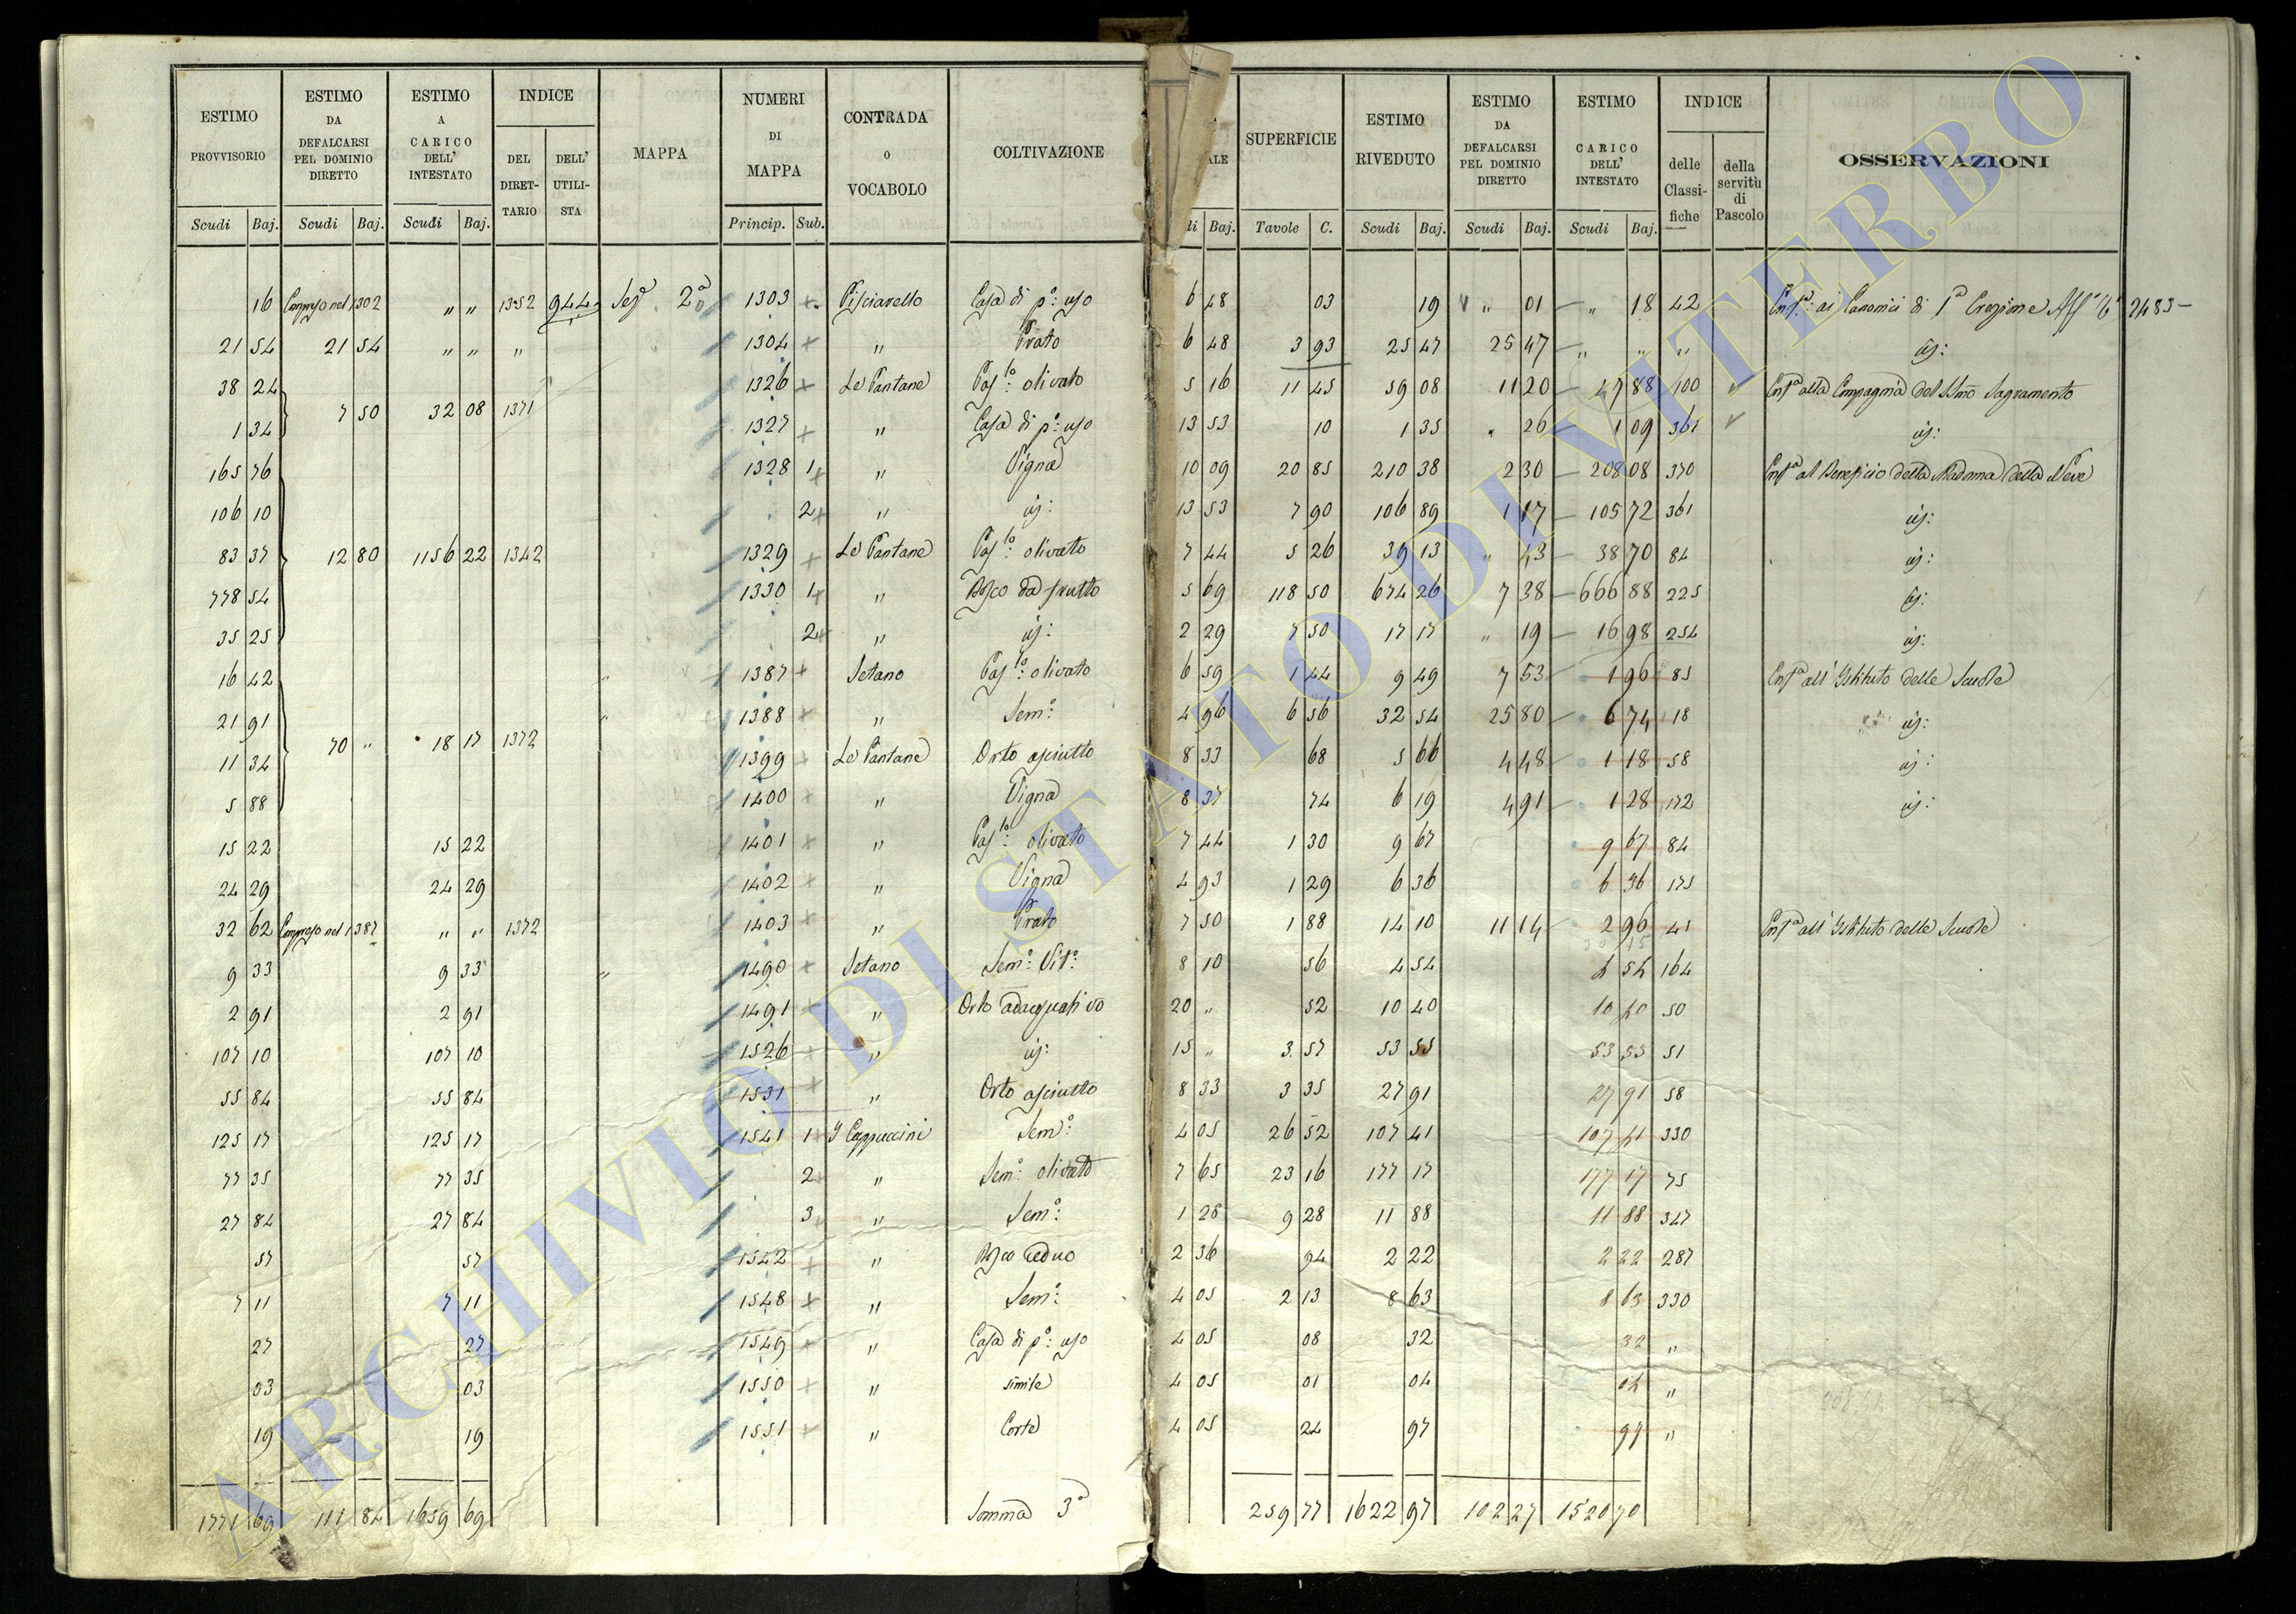 ESTIMO PROVVISORIO Scudi Baj. | ESTIMO DA DEFALCARSI PEL DOMINIO DIRETTO Scudi Baj. | ESTIMO A CARICO DELL' INTESTATO Scudi Baj. | INDICE DEL DIRETTARIO DELL' UTILISTA | MAPPA | NUMERI DI MAPPA Princip. Sub. | CONTRADA o VOCABOLO | COLTIVAZIONE | ALE di Baj. | SUPERFICIE Tavole C. | ESTIMO RIVEDUTO Scudi Baj. | ESTIMO DA DEFALCARSI PEL DOMINIO DIRETTO Scudi Baj. | ESTIMO A CARICO DELL' INTESTATO Scudi Baj. | INDICE delle Classifiche della servitù di Pascolo | OSSERVAZIONI
16 Compreso nel 1302 " " 1352 944 Sez.e 2a 1303 Pisciarello Casa di p.o uso 6 48 03 19 " 01 " 18 42 Enf.a ai Canonici di 1a Erezione 2483
21 54 21 54 " " " 1304 " Prato 6 48 3 93 25 47 25 47 " " " id:
38 24 1326 Le Pantane Pas.lo olivato 5 16 11 45 59 08 11 20 47 88 100 Enf.a alla Compagnia del SSmo Sagramento
7 50 32 08 1371
1 34 1327 " Casa di p.o uso 13 53 10 1 35 " 26 1 09 361 id:
165 76 1328 1 " Vigna 10 09 20 85 210 38 2 30 208 08 370 Enf.a al Beneficio della Madonna della Neve
106 10 2 " id: 13 53 7 90 106 89 1 17 105 72 361 id:
83 37 12 80 1156 22 1342 1329 Le Pantane Pas.lo olivato 7 44 5 26 39 13 " 43 38 70 84 id:
778 54 1330 1 " Bosco da frutto 5 69 118 50 674 26 7 38 666 88 225 id:
35 25 2 " id: 2 29 7 50 17 17 " 19 16 98 254 id:
16 42 1387 Setano Pas.lo olivato 6 59 1 44 9 49 7 53 1 96 85 Enf.a all'Istituto delle Scuole
21 91 1388 " Sem.o 4 96 6 56 32 54 25 80 6 74 118 id:
70 " 18 17 1372
11 34 1399 Le Pantane Orto asciutto 8 33 68 5 66 4 48 1 18 58 id:
5 88 1400 " Vigna 8 37 74 6 19 4 91 1 28 172 id:
15 22 15 22 1401 " Pas.lo olivato 7 44 1 30 9 67 9 67 84
24 29 24 29 1402 " Vigna 4 93 1 29 6 36 6 36 175
32 62 Compreso nel 1387 " " 1372 1403 " Prato 7 50 1 88 14 10 11 14 2 96 41 Enf.a all'Istituto delle Scuole
9 33 9 33 1490 Setano Sem.o Vit.o 8 10 56 4 54 4 54 164
2 91 2 91 1491 " Orto adacquativo 20 " 52 10 40 10 40 50
107 10 107 10 1526 " id: 15 " 3 57 53 55 53 55 51
55 84 55 84 1531 " Orto asciutto 8 33 3 35 27 91 27 91 58
125 17 125 17 1541 1 I Cappuccini Sem.o 4 05 26 52 107 41 107 41 330
77 35 77 35 2 " Sem.o olivato 7 65 23 16 177 17 177 17 75
27 84 27 84 3 " Sem.o 1 28 9 28 11 88 11 88 347
57 57 1542 " Bosco ceduo 2 36 94 2 22 2 22 287
7 11 7 11 1548 " Sem.o 4 05 2 13 8 63 8 63 330
27 27 1549 " Casa di p.o uso 4 05 08 32 32 "
03 03 1550 " simile 4 05 01 04 04 "
19 19 1551 " Corte 4 05 24 97 97 "
1771 69 111 84 1659 69 Somma 3a 259 77 1622 97 102 27 1520 70
ARCHIVIO DI STATO DI VITERBO